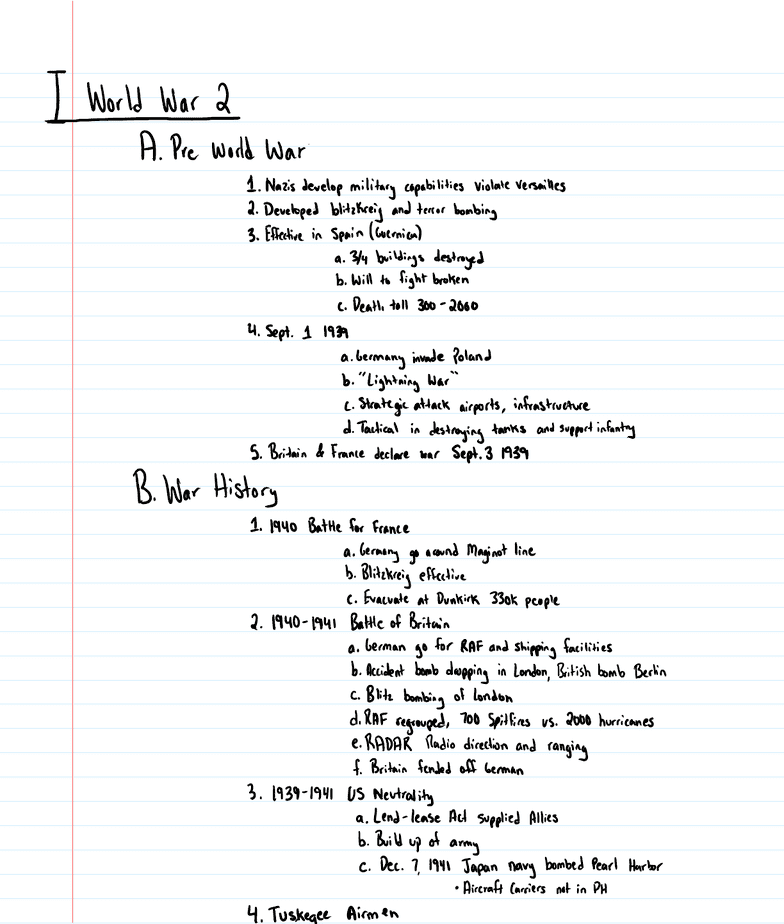 I World War 2
A. Pre World War
1. Nazis develop military capabilities violate Versailles
2. Developed blitzkreig and terror bombing
3. Effective in Spain (Guernica)
a. 3/4 buildings destroyed
b. Will to fight broken
c. Death toll 300-2000
4. Sept. 1 1939
a. Germany invade Poland
b. "Lightning War"
c. Strategic attack airports, infrastructure
d. Tactical in destroying tanks and support infantry
5. Britain & France declare war Sept. 3 1939
B. War History
1. 1940 Battle for France
a. Germany go around Maginot line
b. Blitzkreig effective
c. Evacuate at Dunkirk 330k people
2. 1940-1941 Battle of Britain
a. German go for RAF and shipping facilities
b. Accident bomb dropping in London, British bomb Berlin
c. Blitz bombing of London
d. RAF regrouped, 700 Spitfires vs. 2000 hurricanes
e. RADAR Radio direction and ranging
f. Britain fended off German
3. 1939-1941 US Neutrality
a. Lend-lease Act supplied Allies
b. Build up of army
c. Dec. 7, 1941 Japan navy bombed Pearl Harbor
• Aircraft Carriers not in PH
4. Tuskegee Airmen